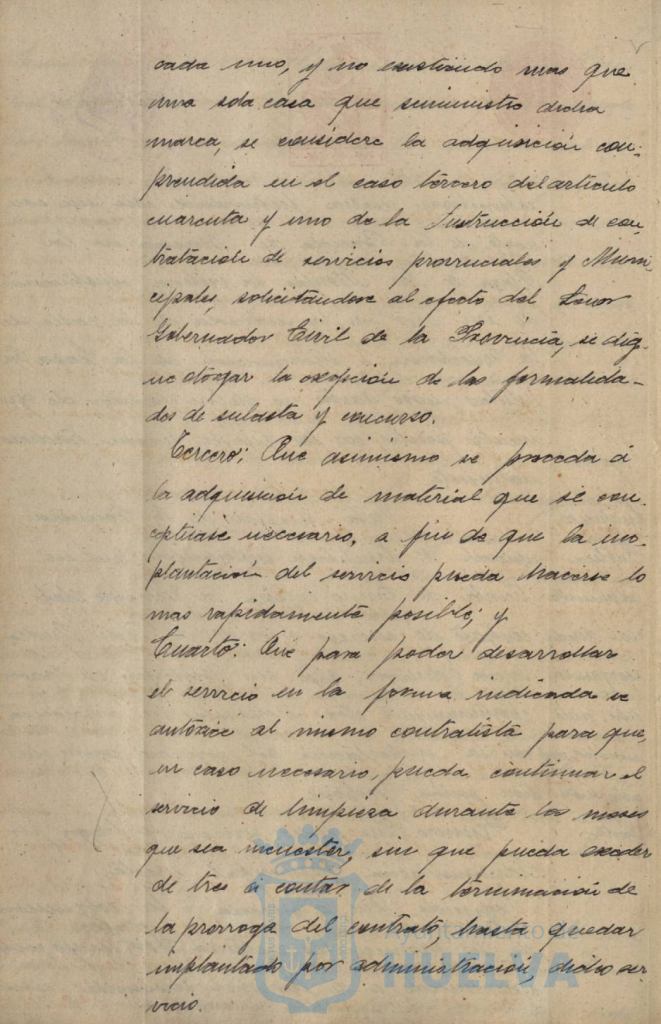 cada uno, y no existiendo mas que
una sola casa que suministre dicha
marca, se considere la adquisición com-
prendida en el caso tercero del artículo
cuarenta y uno de la Instrucción de con-
tratación de servicios provinciales y Muni-
cipales, solicitandose al efecto del Señor
Gobernador Civil de la Provincia, se dig-
ne otorgar la exepción de las formalida-
des de subasta y concurso.
Tercero; Que asimismo se proceda á
la adquisición de material que se con-
ceptuase necesario, a fin de que la im-
plantación del servicio pueda hacerse lo
mas rapidamente posible; y
Cuarto: Que para poder desarrollar
el servicio en la forma indicada se
autorice al mismo contratista para que,
en caso necesario, pueda continuar el
servicio de limpieza durante los meses
que sea menester, sin que pueda exceder
de tres á contar de la terminación de
la prorroga del contrato, hasta quedar
implantado por administración, dicho ser-
vicio.
Ayuntamiento de
HUELVA